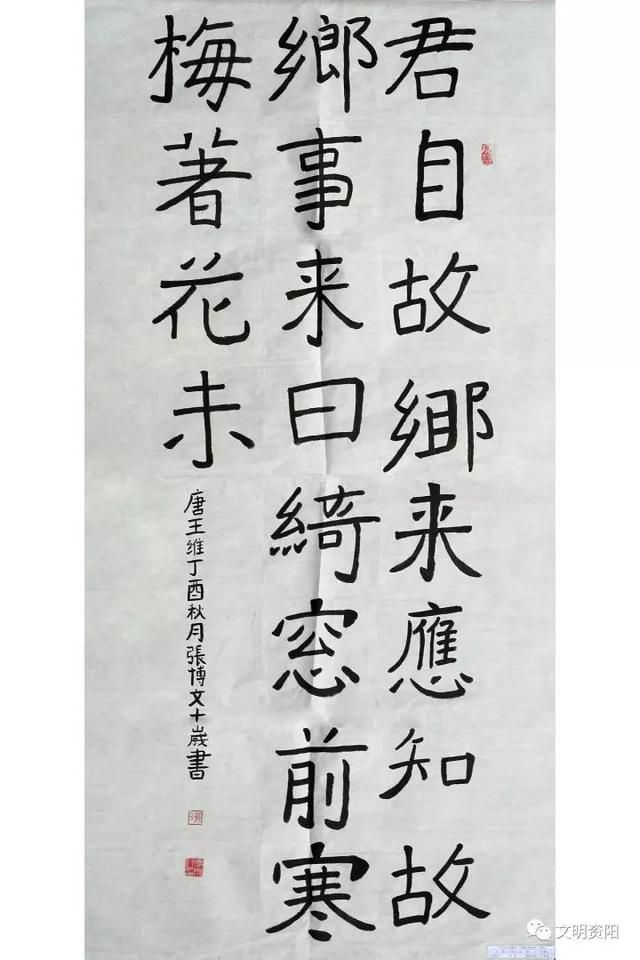 君自故鄉来應知故
鄉事来曰綺窓前寒
梅著花未
唐王维丁酉秋月張博文十歲書
文明资阳